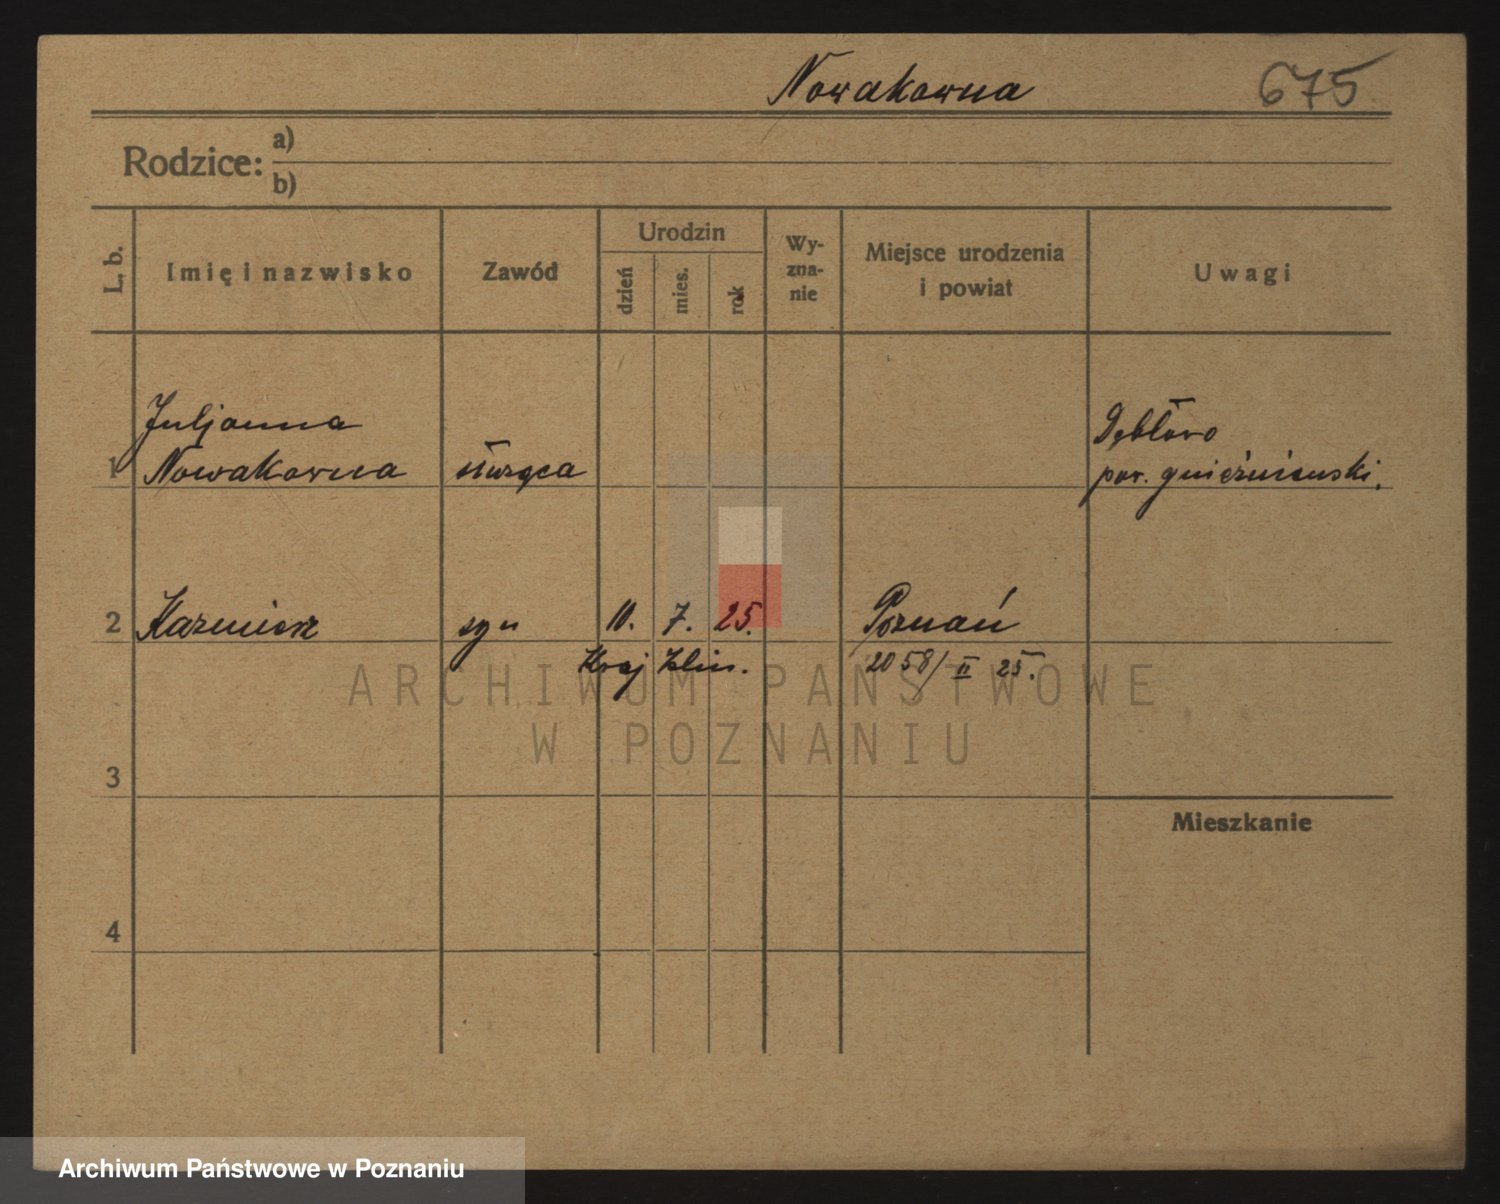 Nowakowna 675
Rodzice: a)
b)
L. b. Imię i nazwisko Zawód Urodzin dzień mies. rok Wy-zna-nie Miejsce urodzenia i powiat Uwagi
Juljanna Dębłowo
1 Nowakowna służąca pow. gnieźnienski.
2 Kazmierz syn 10. 7. 25. Poznań
Kraj Klin. 2058/II 25.
ARCHIWUM PAŃSTWOWE
W POZNANIU
3
Mieszkanie
4
Archiwum Państwowe w Poznaniu